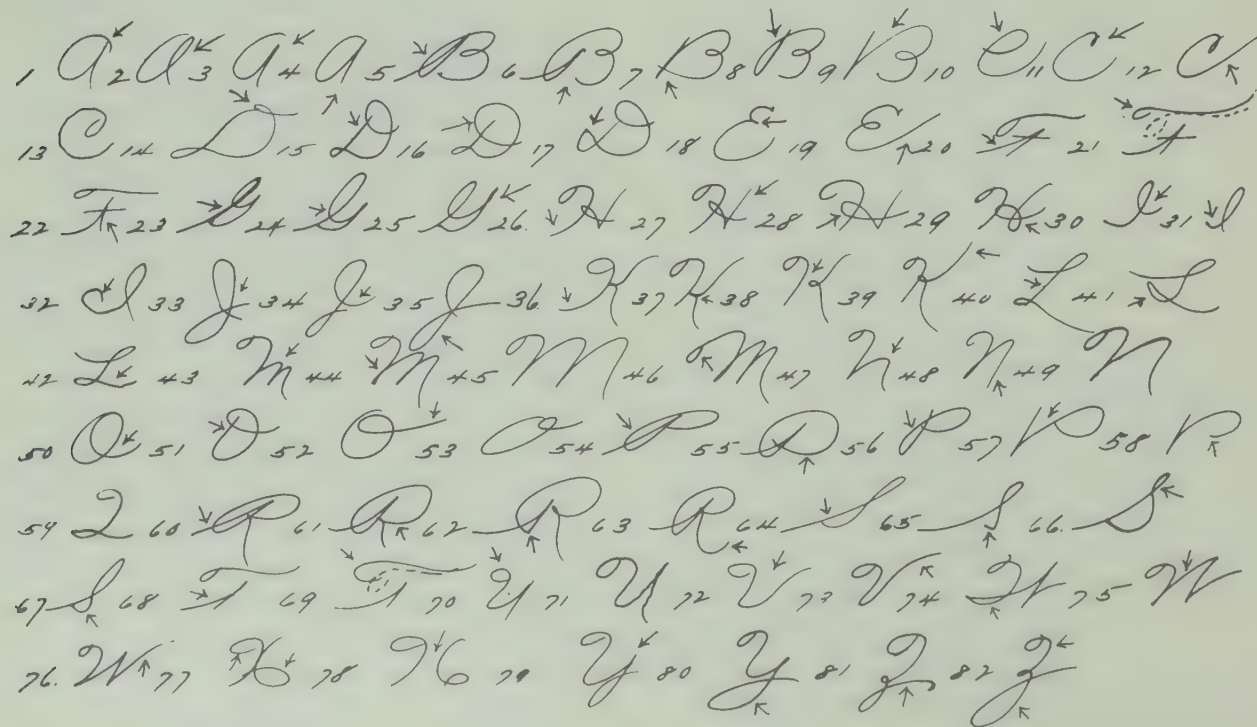 1 A 2 A 3 A 4 A 5 B 6 B 7 B 8 B 9 B 10 C 11 C 12 C
13 C 14 D 15 D 16 D 17 D 18 E 19 E 20 F 21 F
22 F 23 G 24 G 25 G 26. H 27 H 28 H 29 H 30 I 31 I
32 I 33 J 34 J 35 J 36. K 37 K 38 K 39 K 40 L 41 L
42 L 43 M 44 M 45 M 46 M 47 N 48 N 49 N
50 O 51 O 52 O 53 O 54 P 55 P 56 P 57 P 58 P
59 Q 60 R 61 R 62 R 63 R 64 S 65 S 66. S
67 S 68 T 69 T 70 U 71 U 72 V 73 V 74 W 75 W
76. W 77 X 78 X 79 Y 80 Y 81 Z 82 Z